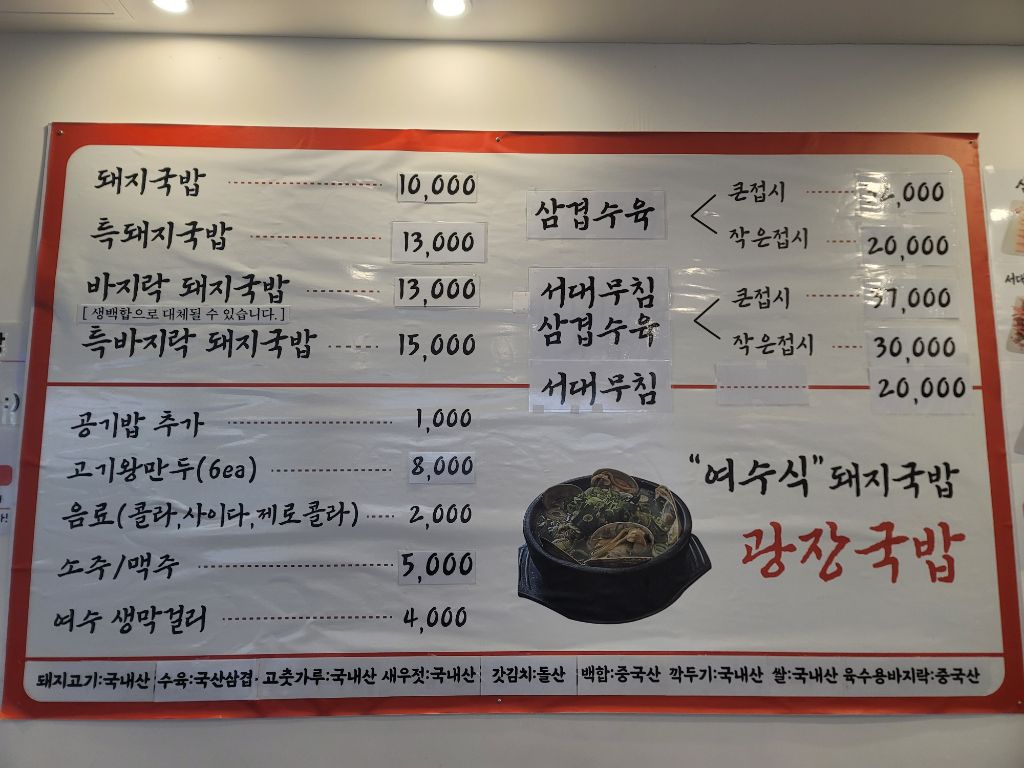 돼지국밥 10,000
특돼지국밥 13,000
바지락 돼지국밥 13,000
[ 생백합으로 대체될 수 있습니다. ]
특바지락 돼지국밥 15,000
삼겹수육
큰접시
작은접시 20,000
서대무침
삼겹수육
큰접시 37,000
작은접시 30,000
서대무침 20,000
공기밥 추가 1,000
고기왕만두(6ea) 8,000
음료(콜라,사이다,제로콜라) 2,000
소주/맥주 5,000
여수 생막걸리 4,000
"여수식" 돼지국밥
광장국밥
돼지고기:국내산 수육:국산삼겹 고춧가루:국내산 새우젓:국내산 갓김치:돌산 백합:중국산 깍두기:국내산 쌀:국내산 육수용바지락:중국산
:)